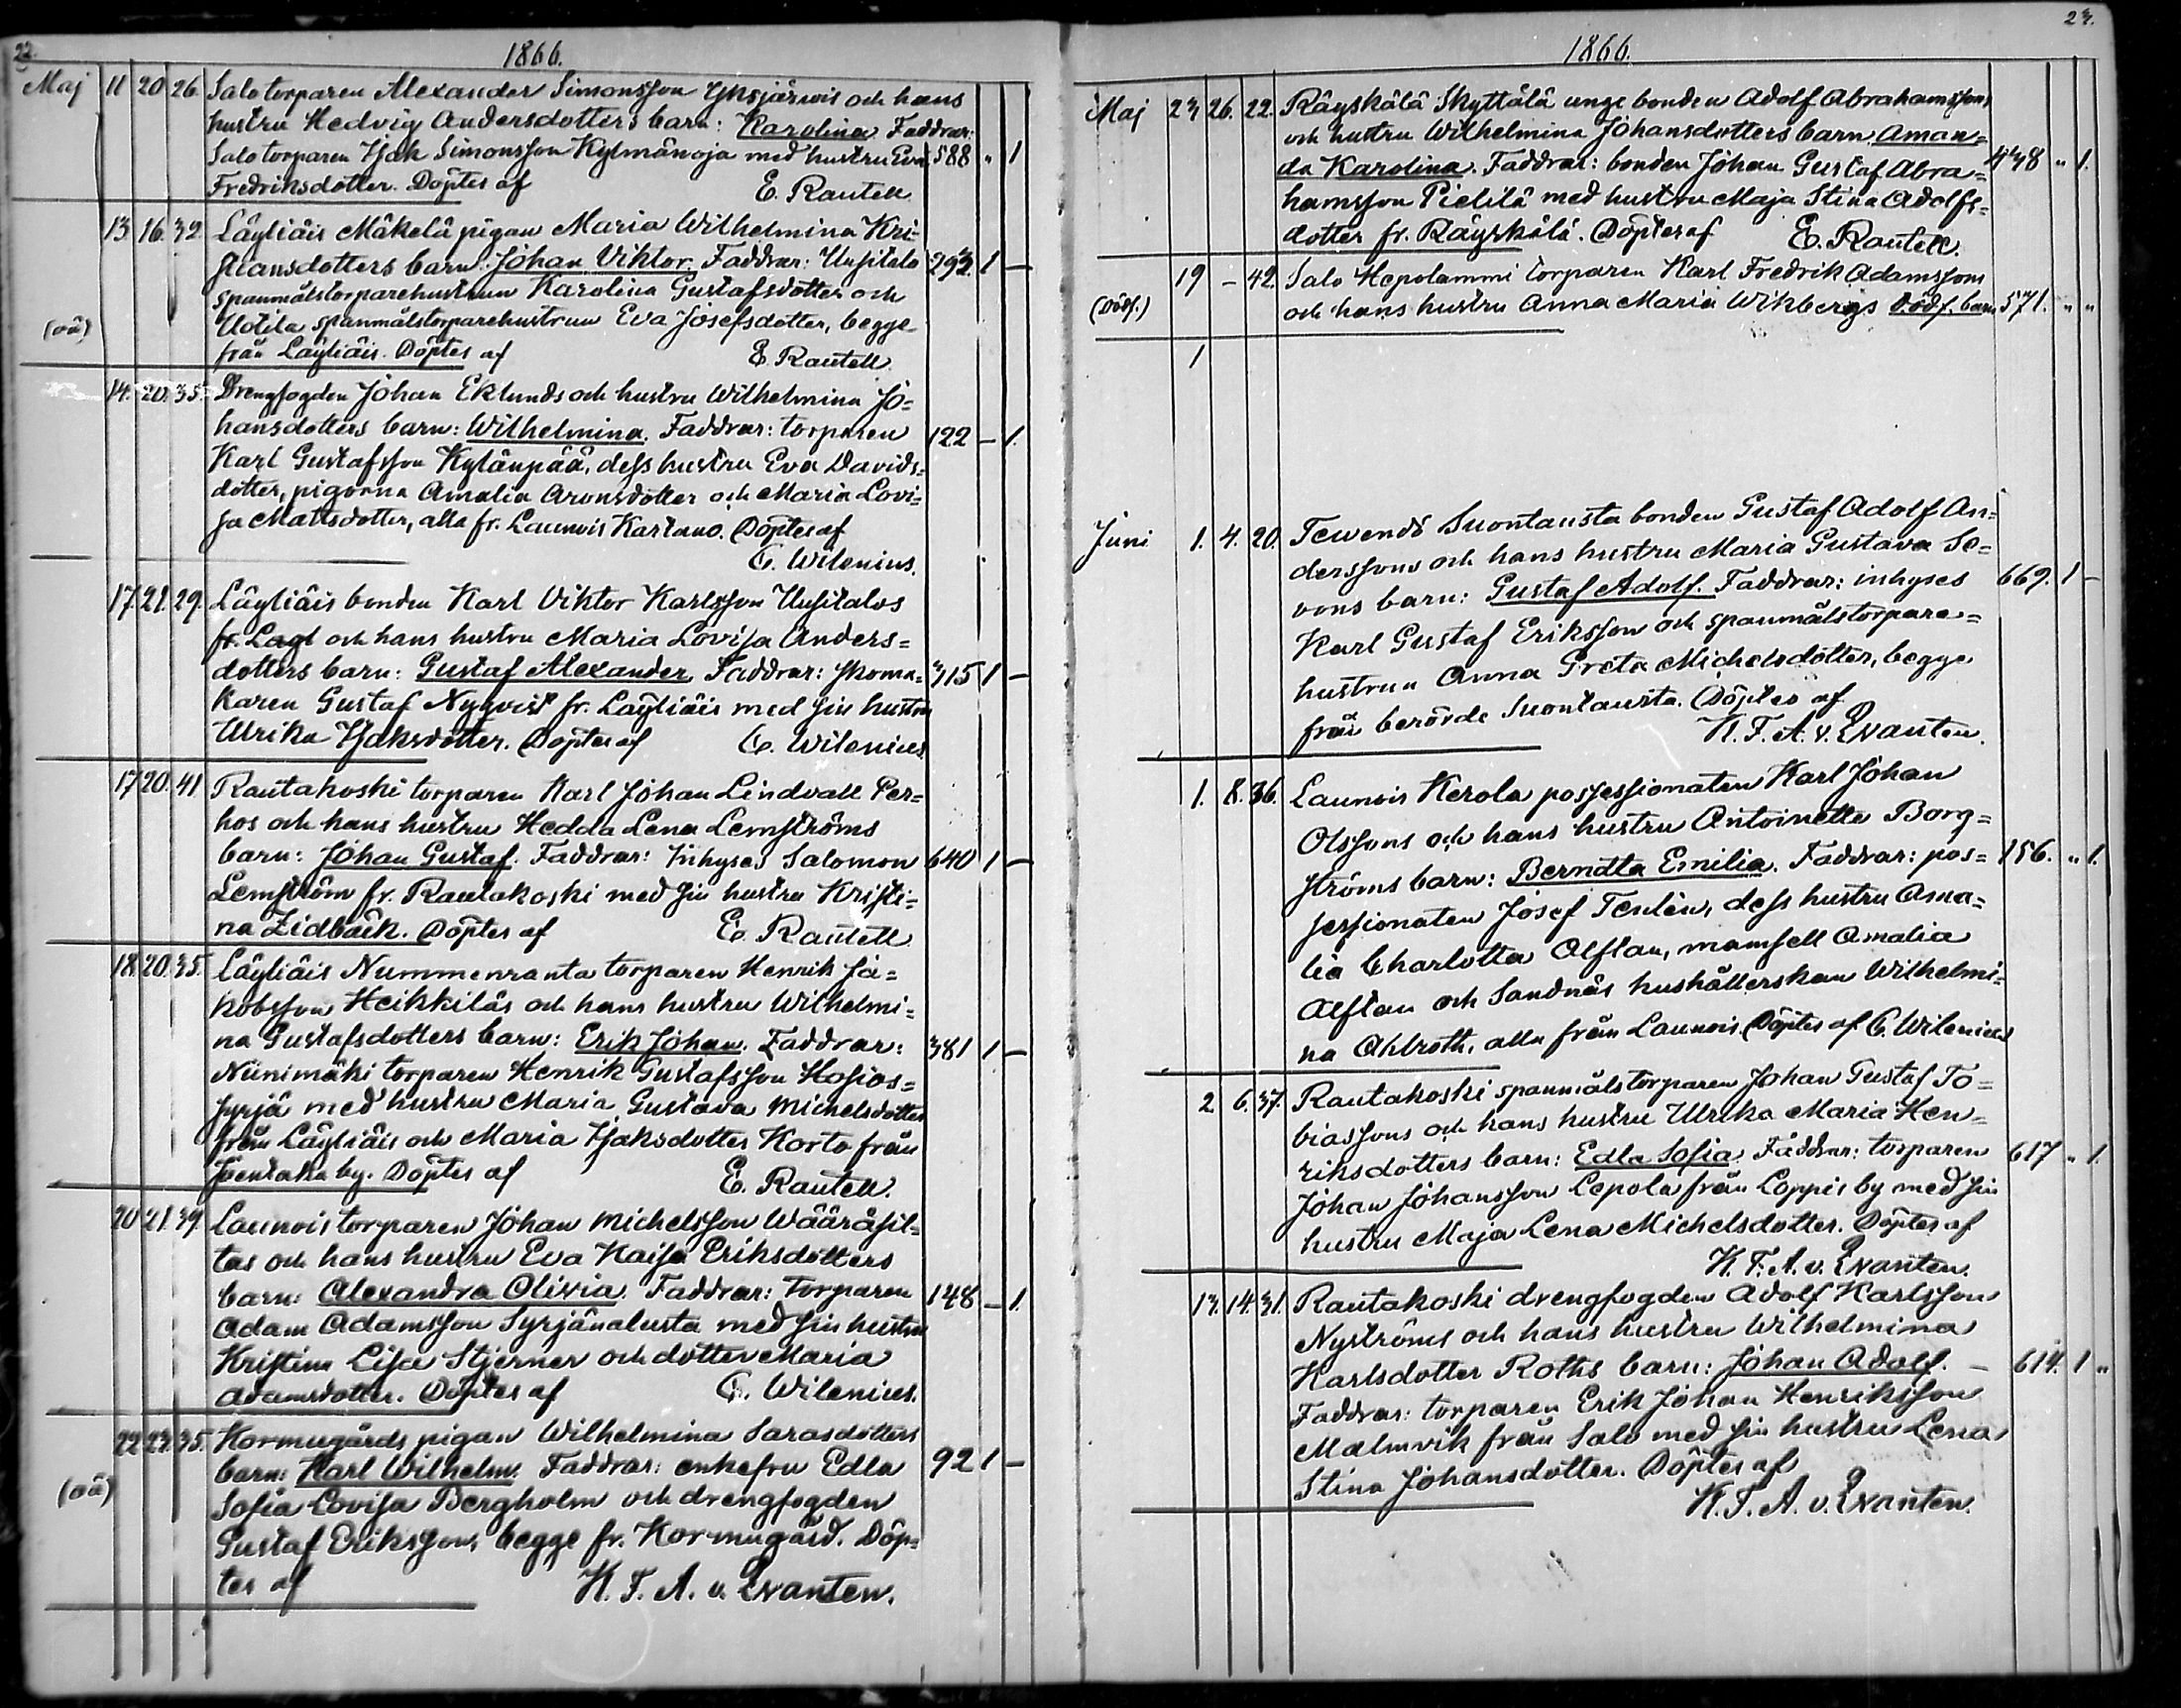 22.
1866.
Maj 11 20 26. Salo torparen Alexander Simonsson Yksjärwis och hans
hustru Hedvig Andersdotters barn: Karolina Faddrar:
Salo torparen Isak Simonsson Kylmänoja med hustru Eva 588 " 1
Fredriksdotter. Döptes af E. Rautell
13. 16. 32. Läyliäis Mäkelä pigan Maria Wilhelmina Kri-
stiansdotters barn: Johan Viktor. Faddrar: Uusitalo 292. 1 –
spanmålstorparehustrun Karolina Gustafsdotter och
(oä) Uotila spanmålstorparehustrun Eva Josefsdotter, begge
från Läyliäis. Döptes af E. Rautell
14. 20. 35. Drengfogden Johan Eklunds och hustru Wilhelmina Jo=
hansdotters barn: Wilhelmina. Faddrar: torparen 122 – 1.
Karl Gustafsson Kylänpää, dess hustru Eva Davids=
dotter, pigorna Amalia Aronsdotter och Maria Lovi=
sa Mattsdotter, alla fr. Launois Kartano. Döptes af
C. Wilenius.
17. 21. 29. Läyliäis bonden Karl Viktor Karlsson Uusitalos
fr. Lagl och hans hustru Maria Lovisa Anders=
dotters barn: Gustaf Alexander Faddrar: skoma= 315 1 –
karen Gustaf Nyqvist fr. Läyliäis med sin hustru
Ulrika Isaksdotter. Döptes af C. Wilenius
17 20. 41 Rautakoski torparen Karl Johan Lindvall Per=
hos och hans hustru Hedda Lena Lemströms
barn: Johan Gustaf. Faddrar: Inhyses Salomon 640 1 –
Lemström fr. Rautakoski med sin hustru Kristi=
na Lidbäck. Döptes af E. Rautell
18. 20. 35. Läyliäis Nummenranta torparen Henrik Ja=
kobsson Heikkiläs och hans hustru Wilhelmi=
na Gustafsdotters barn: Erik Johan. Faddrar: 381 1 –
Niinimäki torparen Henrik Gustafsson Hosios=
syrjä med hustru Maria Gustava Michelsdotter
från Läyliäis och Maria Isaksdotter Korto från
Joentaka by. Döptes af E. Rautell.
20 21. 39. Launois torparen Johan Michelsson Wääräsil=
tas och hans hustru Eva Kaisa Eriksdotters
barn: Alexandra Olivia. Faddrar: Torparen 148 – 1.
Adam Adamsson Syrjänalusta med sin hustru
Kristina Lisa Stjerner och dotter Maria
Adamsdotter. Döptes af C. Wilenius.
22 23. 35. Kormugårds pigan Wilhelmina Sarasdotters
barn: Karl Wilhelm. Faddrar: enkefru Edla 92 1 –
(oä) Sofia Lovisa Bergholm och drengfogden
Gustaf Eriksson, begge fr. Kormugård. Döp=
tes af K. F. A. v. Qvanten.
23.
1866.
Maj 23 26. 22. Räyskälä Skyttälä unge bonden Adolf Abrahamssons
och hustru Wilhelmina Johansdotters barn Aman=
da Karolina. Faddrar: bonden Johan Gustaf Abra= 438 " 1.
hamsson Pietilä med hustru Maja Stina Adolfs=
dotter fr. Räyskälä. Döptes af E. Rautell.
19 – 42. Salo Hepolammi torparen Karl Fredrik Adamssons
(Dödf.) och hans hustru Anna Maria Wikbergs dödf. barn 571. " "
1
Juni 1. 4. 20. Tewendö Suontausta bonden Gustaf Adolf An=
derssons och hans hustru Maria Gustava Se=
vons barn: Gustaf Adolf. Faddrar: inhyses 669. 1 –
Karl Gustaf Eriksson och spanmålstorpare=
hustrun Anna Greta Michelsdotter, begge
från berörde Suontausta. Döptes af
K. F. A. v. Qvanten.
1. 8. 36. Launois Kerola possessionaten Karl Johan
Olssons och hans hustru Antoinette Borg=
ströms barn: Berndta Emilia. Faddrar: pos= 156. " 1.
sessionaten Josef Tenlén, dess hustru Ama=
lia Charlotta Alftan, mamsell Amalia
Alftan och Sandnäs hushållerskan Wilhelmi=
na Ahlroth, alla från Launois. Döptes af C. Wilenius
2 6. 37. Rautakoski spanmålstorparen Johan Gustaf To=
biassons och hans hustru Ulrika Maria Hen=
riksdotters barn: Edla Sofia Faddrar: torparen 617 " 1.
Johan Johansson Lepola från Loppis by med sin
hustru Maja Lena Michelsdotter. Döptes af
K. F. A. v. Qvanten.
13. 14. 31. Rautakoski drengfogden Adolf Karlsson
Nyströms och hans hustru Wilhelmina
Karlsdotter Roths barn: Johan Adolf. – 614. 1 "
Faddrar: torparen Erik Johan Henriksson
Malmvik från Salo med sin hustru Lena
Stina Johansdotter. Döptes af
K. F. A. v. Qvanten.